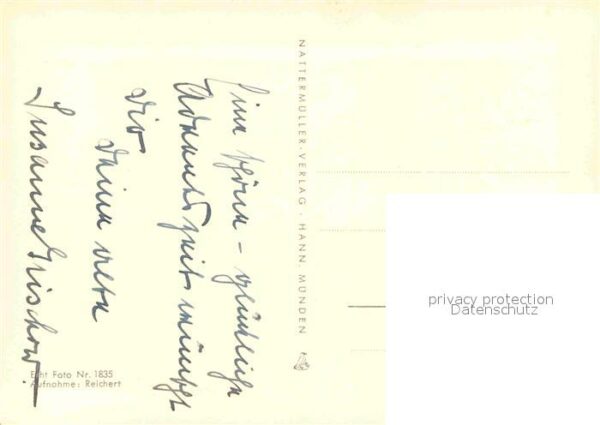 Eine schöne - glückliche
Adventszeit wünscht
Dir
Deine alte
Susanne Grischow.
NATTERMÜLLER-VERLAG · HANN. MÜNDEN
Echt Foto Nr. 1835
Aufnahme: Reichert
privacy protection
Datenschutz